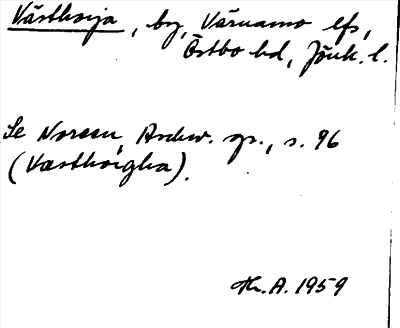 Västhorja, by, Värnamo lfs,
Östbo hd, Jönk. l.
Se Noreen, Ardw. gr., s. 96
(Væsthöigha).
Th. A. 1959